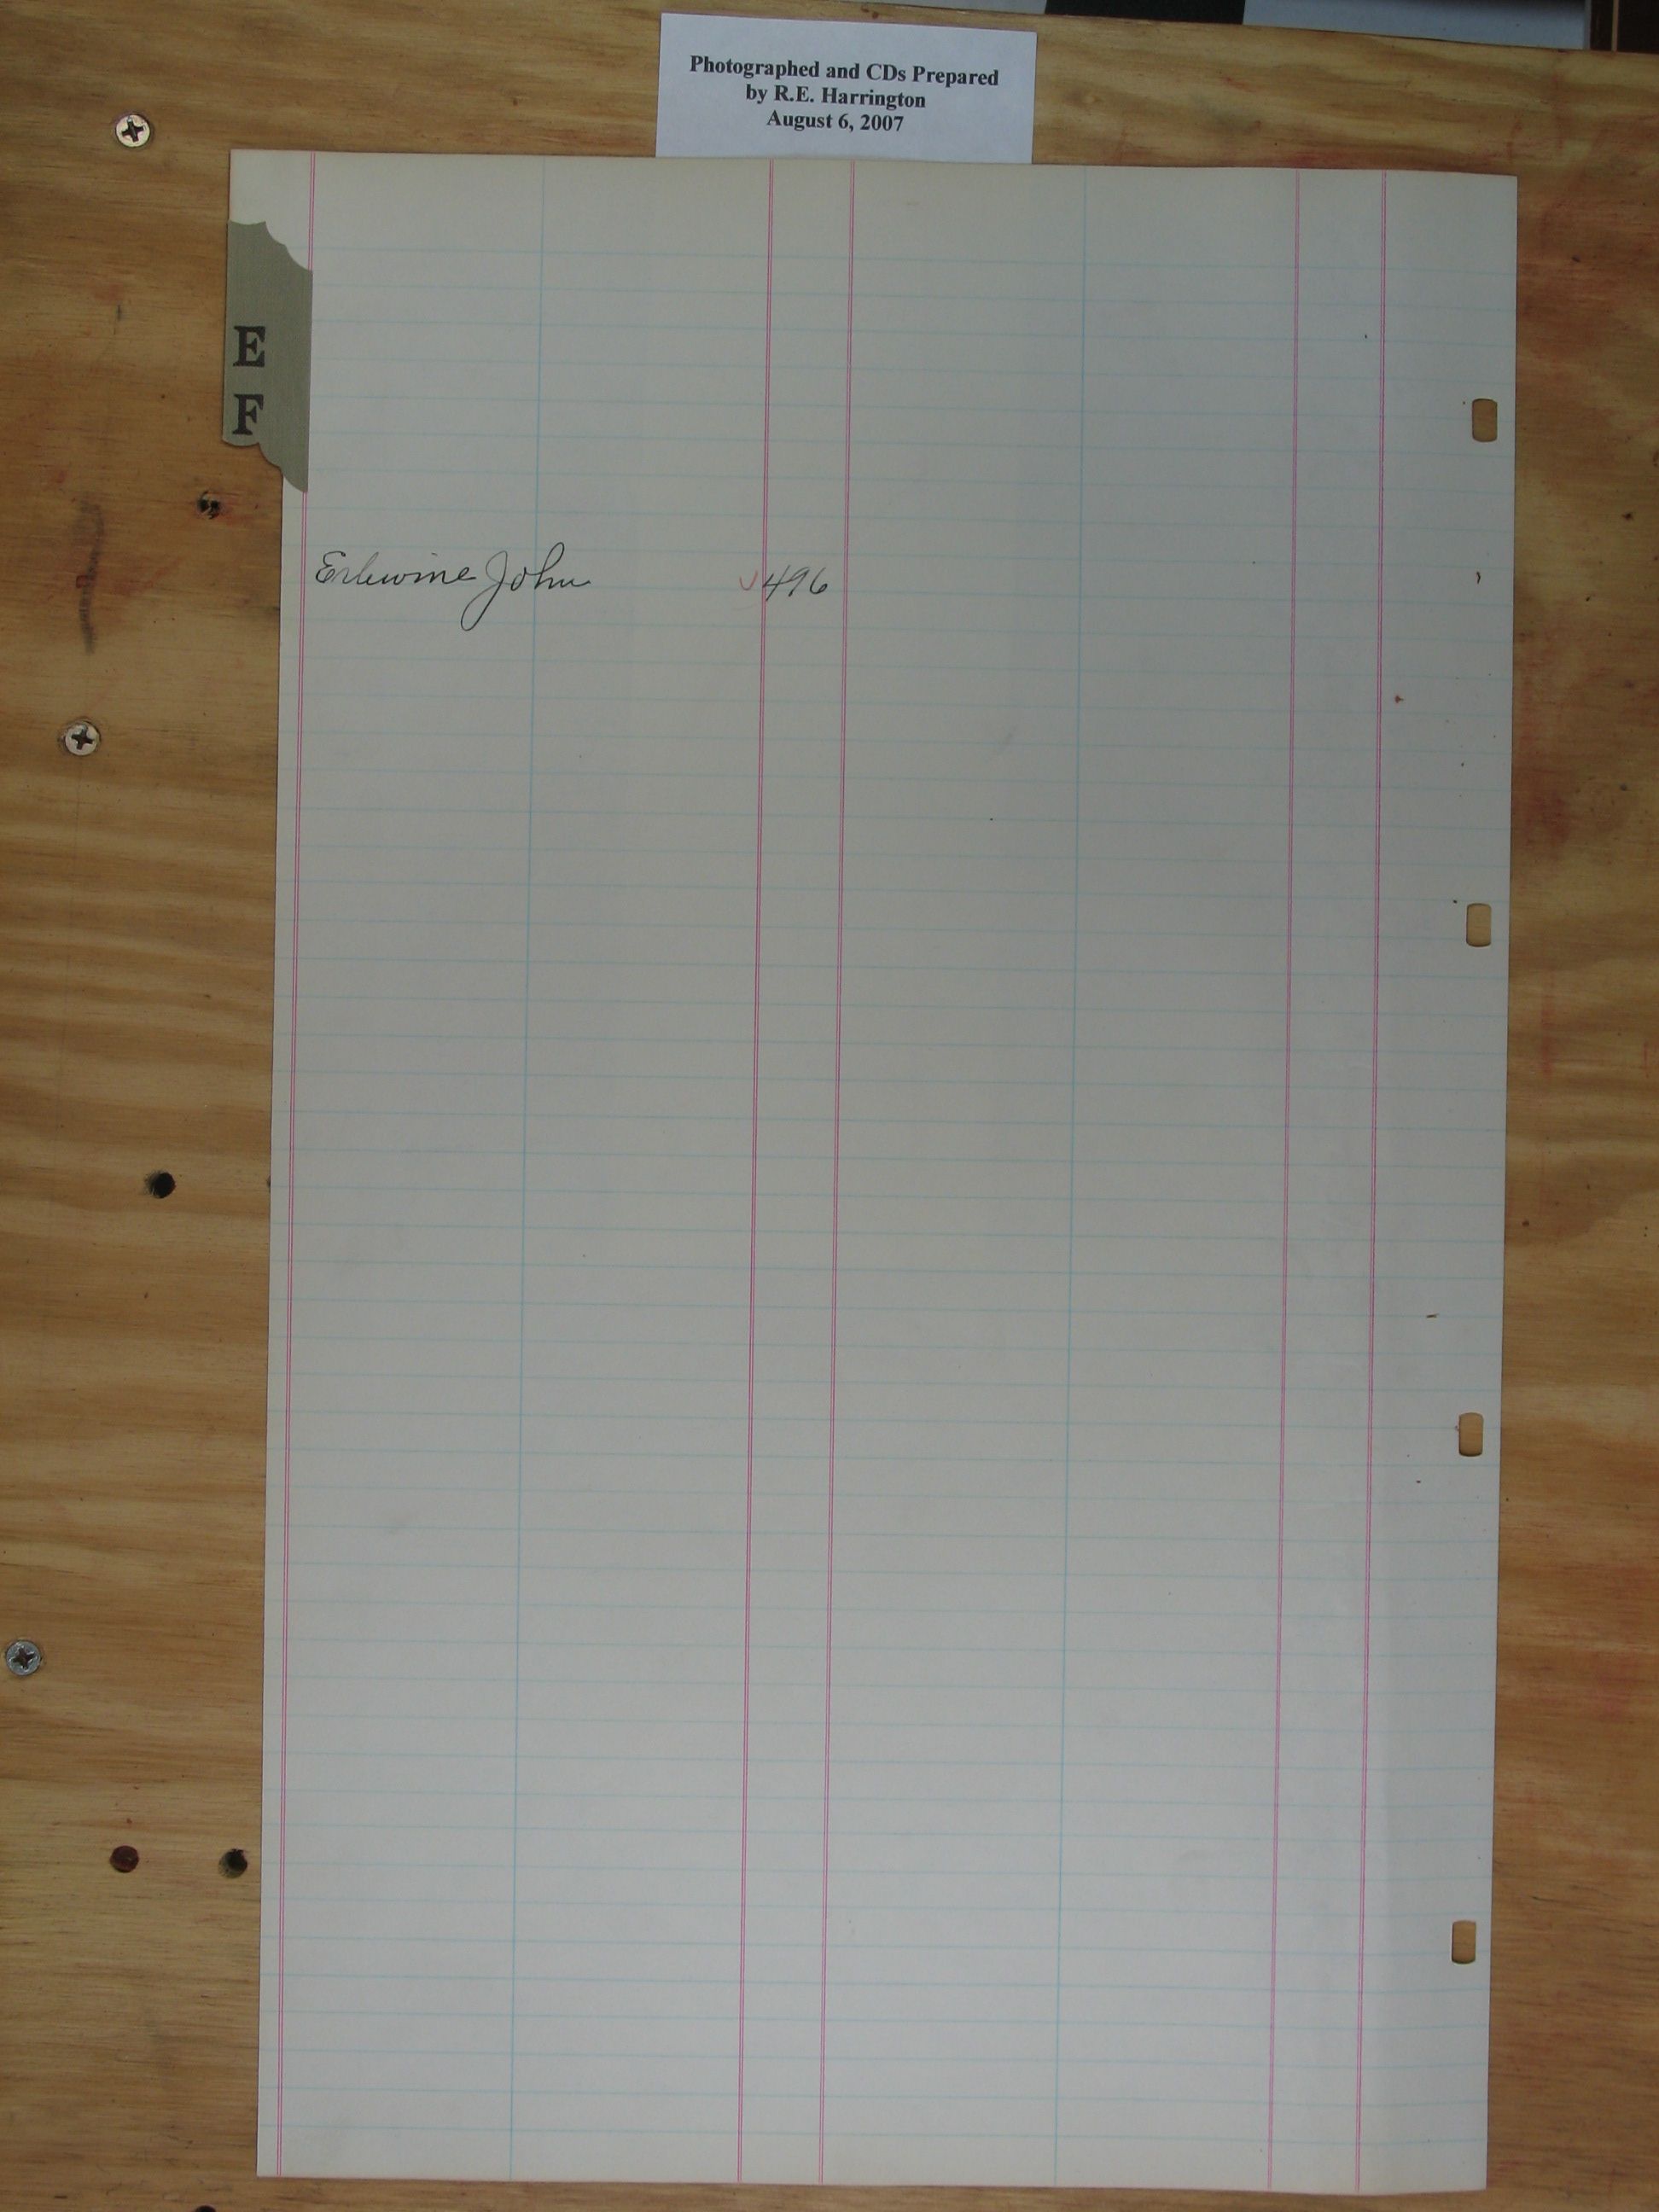 Photographed and CDs Prepared
by R.E. Harrington
August 6, 2007
E
F
Erlewine John 496